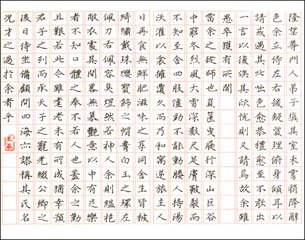 望尊門人弟子填其室未嘗稍降辭
色余立侍左右援疑質理俯身傾耳以
請或遇其叱咄色愈恭禮愈至不敢出
一言以復俟其欣悅則又請焉故余雖
愚卒獲有所聞
當余之從師也負篋曳屣行深山巨谷
中窮冬烈風大雪深數尺足膚皸裂而
不知至舍四肢僵勁不能動媵人持湯
沃灌以衾擁覆久而乃和寓逆旅主人
日再食無鮮肥滋味之享同舍生皆被
綺繡戴珠纓寶飾之帽腰白玉之環左
佩刀右備容臭燁然若神人余則縕袍
敝衣處其間略無慕豔意以中有足樂
者不知口體之奉不若人也蓋余之勤
且艱若此今雖耄老未有所成猶幸預
君子之列而承天子之寵光綴公卿之
後日侍坐備顧問四海亦謬稱其氏名
況才之過於余者乎